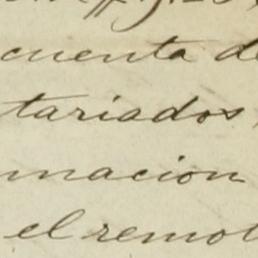 cuenta de
tariados,
macion
el remot